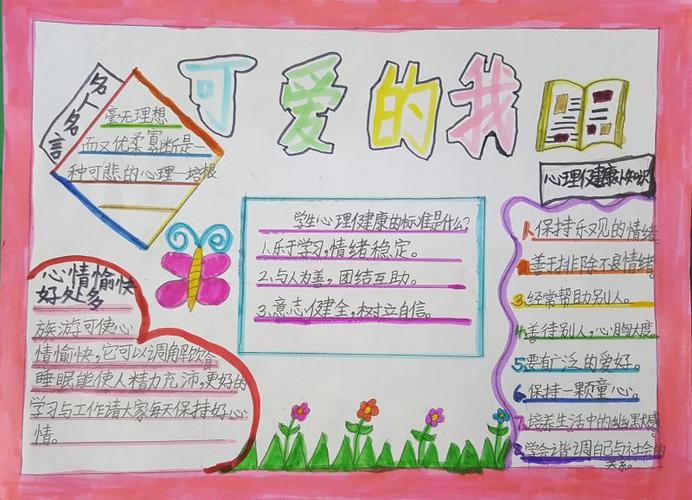 可爱的我
名人名言
毫无理想
而又优柔寡断是一
种可悲的心理—培根
心理健康小知识
学生心理健康的标准是什么?
1.乐于学习,情绪稳定。
2.与人为善,团结互助。
3.意志健全,树立自信。
1.保持乐观的情绪。
2.善于排除不良情绪
3.经常帮助别人。
4.善待别人,心胸大度。
5.要有广泛的爱好。
6.保持一颗童心。
7.培养生活中的幽默感。
8.学会协调自己与社会的
关系。
心情愉快
好处多
旅游可使心
情愉快,它可以调解饮食
睡眠能使人精力充沛,更好的
学习与工作请大家每天保持好心
情。